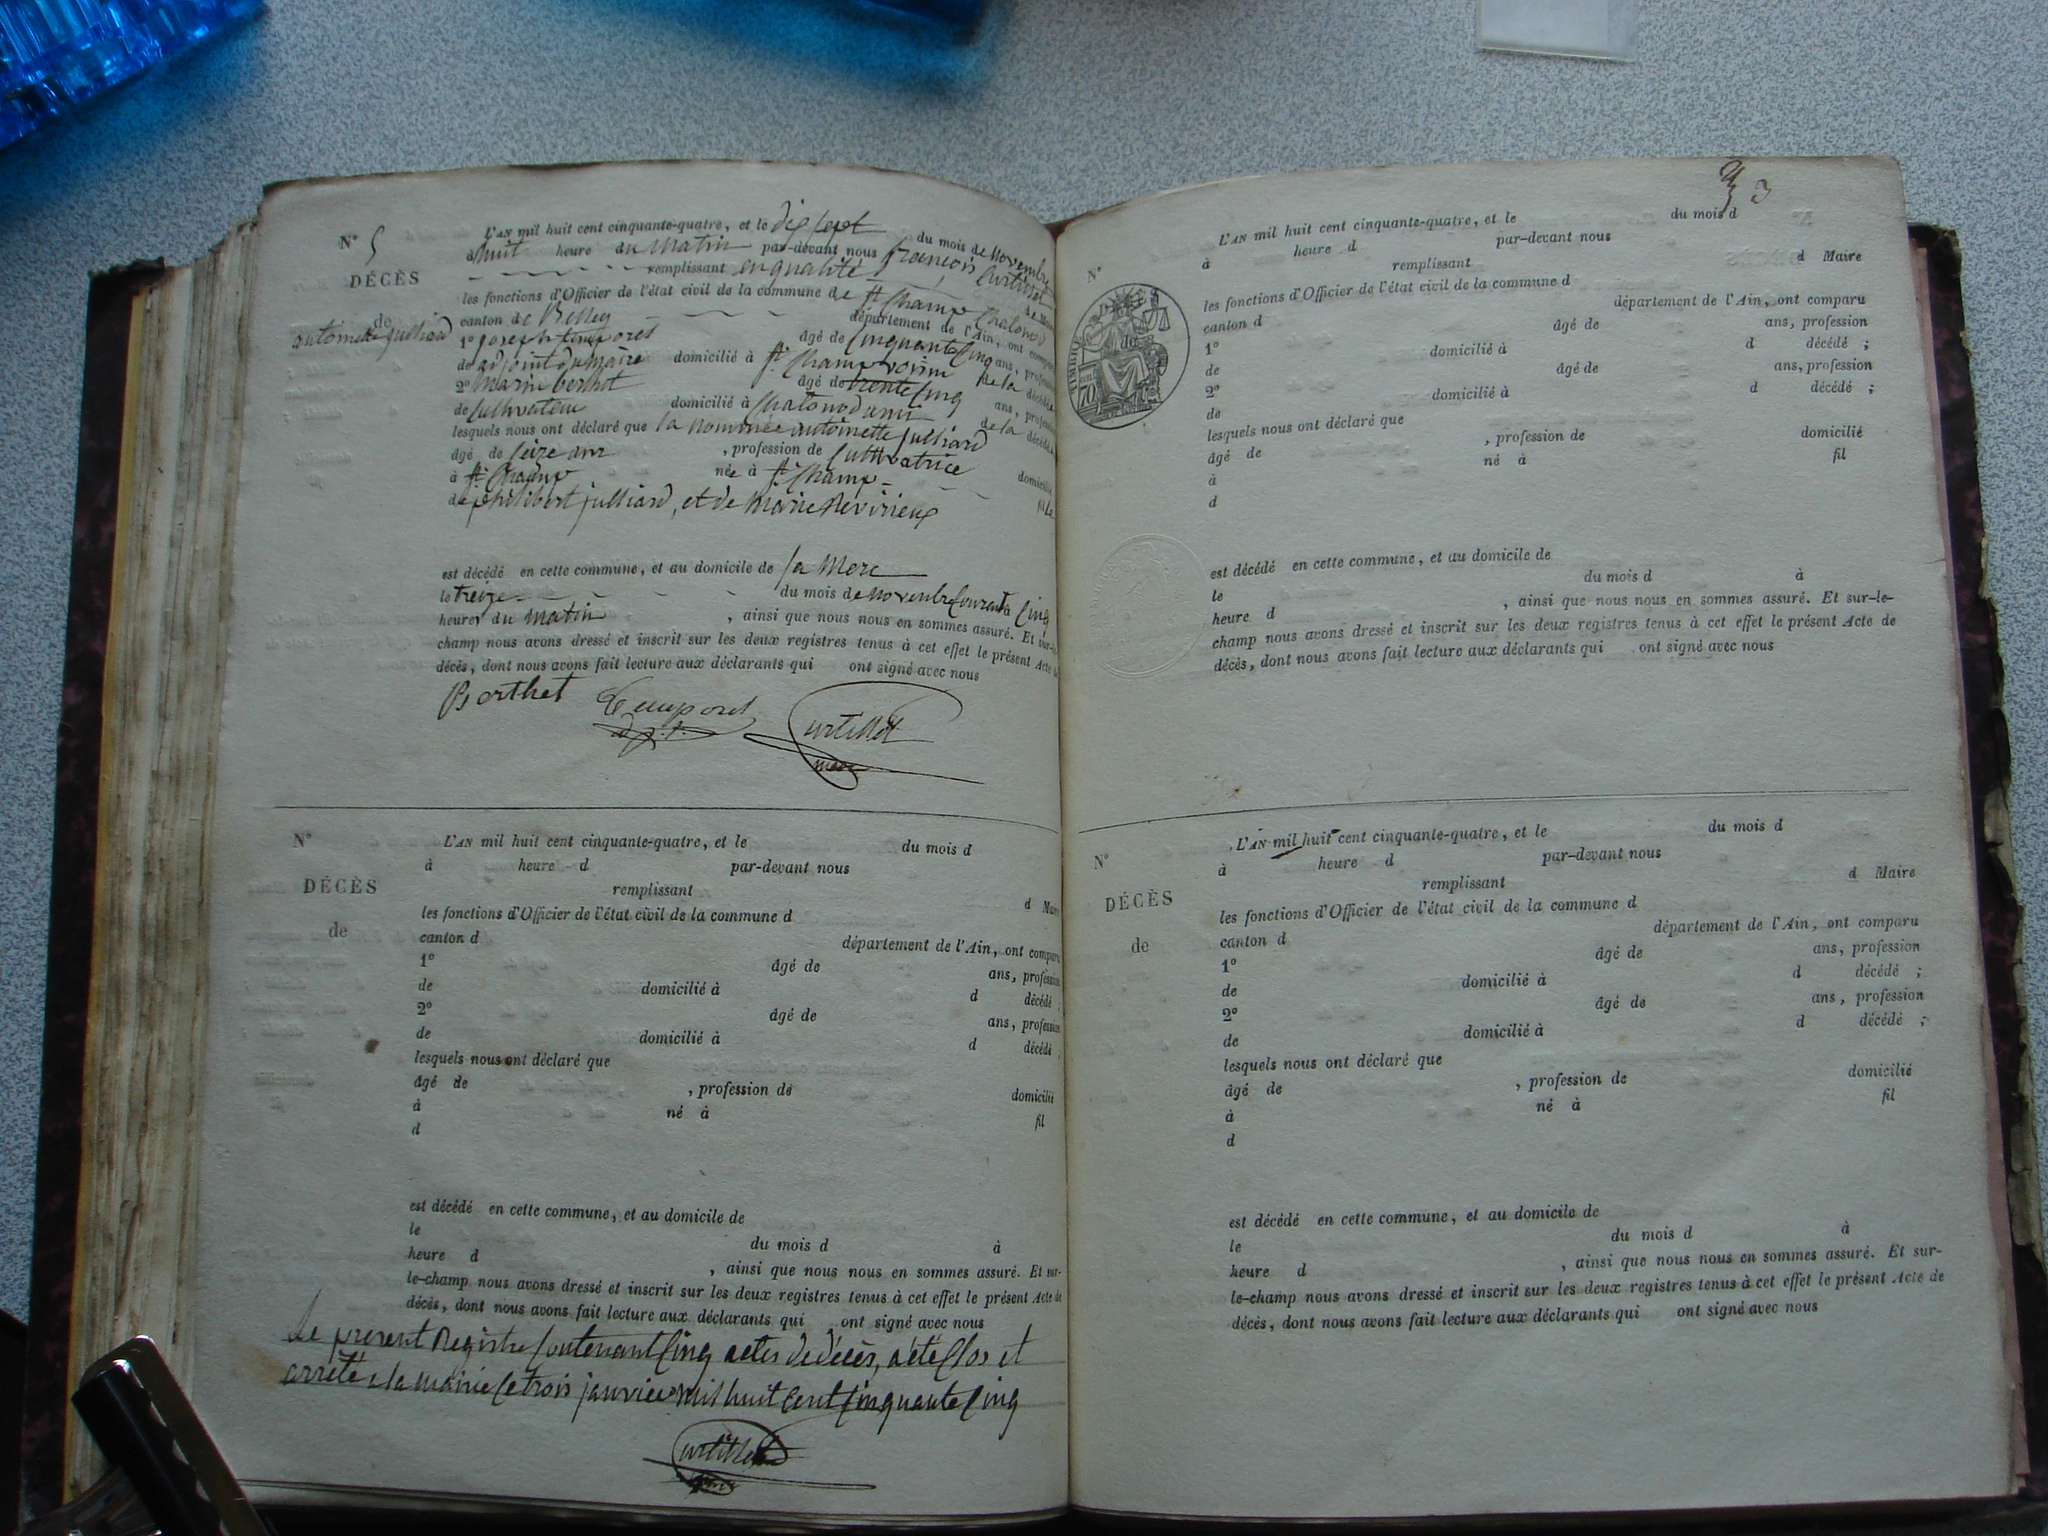 N° 5
DÉCÈS
de
antoinette julliard
L'AN mil huit cent cinquante-quatre, et le dix sept du mois de novembre
à huit heure du matin par-devant nous françois Curtillet
remplissant en qualité de Maire
les fonctions d'Officier de l'état civil de la commune de St Champ Chatonod
canton de Belley département de l'Ain, ont comparu
1° joseph temporet âgé de cinquante cinq ans, profession
de adjoint du maire domicilié à St Champ voisin de la décédée
2° marin berthet âgé de trente cinq ans, profession
de cultivateur domicilié à Chatonod ami de la décédée
lesquels nous ont déclaré que la nommée antoinette julliard
âgé de seize ans , profession de cultivatrice domicilié
à St Champ née à St Champ fille
de philibert julliard, et de marie Revirieux
est décédé en cette commune, et au domicile de sa Mere
le treize du mois de novembre courant à cinq
heures du matin , ainsi que nous nous en sommes assuré. Et sur-le-
champ nous avons dressé et inscrit sur les deux registres tenus à cet effet le présent Acte de
décès, dont nous avons fait lecture aux déclarants qui ont signé avec nous
Berthet Temporet Curtillet
adjt. maire
N°
DÉCÈS
de
L'AN mil huit cent cinquante-quatre, et le du mois d
à heure d par-devant nous
remplissant d Maire
les fonctions d'Officier de l'état civil de la commune d
canton d département de l'Ain, ont comparu
1° âgé de ans, profession
de domicilié à d décédé ;
2° âgé de ans, profession
de domicilié à d décédé ;
lesquels nous ont déclaré que
âgé de , profession de domicilié
à né à fil
d
est décédé en cette commune, et au domicile de
le du mois d à
heure d , ainsi que nous nous en sommes assuré. Et sur-
le-champ nous avons dressé et inscrit sur les deux registres tenus à cet effet le présent Acte de
décès, dont nous avons fait lecture aux déclarants qui ont signé avec nous
Le present Registre contenant cinq actes de décès, a été clos et
arrêté a la mairie le trois janvier mil huit cent cinquante cinq
Curtillet
maire
3
N°
L'AN mil huit cent cinquante-quatre, et le du mois d
à heure d par-devant nous
remplissant d Maire
les fonctions d'Officier de l'état civil de la commune d
canton d département de l'Ain, ont comparu
1° âgé de ans, profession
de domicilié à d décédé ;
2° âgé de ans, profession
de domicilié à d décédé ;
lesquels nous ont déclaré que
âgé de , profession de domicilié
à né à fil
d
TIMBRE
70
de
est décédé en cette commune, et au domicile de
le du mois d à
heure d , ainsi que nous nous en sommes assuré. Et sur-le-
champ nous avons dressé et inscrit sur les deux registres tenus à cet effet le présent Acte de
décès, dont nous avons fait lecture aux déclarants qui ont signé avec nous
N°
DÉCÈS
de
L'AN mil huit cent cinquante-quatre, et le du mois d
à heure d par-devant nous
remplissant d Maire
les fonctions d'Officier de l'état civil de la commune d
canton d département de l'Ain, ont comparu
1° âgé de ans, profession
de domicilié à d décédé ;
2° âgé de ans, profession
de domicilié à d décédé ;
lesquels nous ont déclaré que
âgé de , profession de domicilié
à né à fil
d
est décédé en cette commune, et au domicile de
le du mois d à
heure d , ainsi que nous nous en sommes assuré. Et sur-
le-champ nous avons dressé et inscrit sur les deux registres tenus à cet effet le présent Acte de
décès, dont nous avons fait lecture aux déclarants qui ont signé avec nous